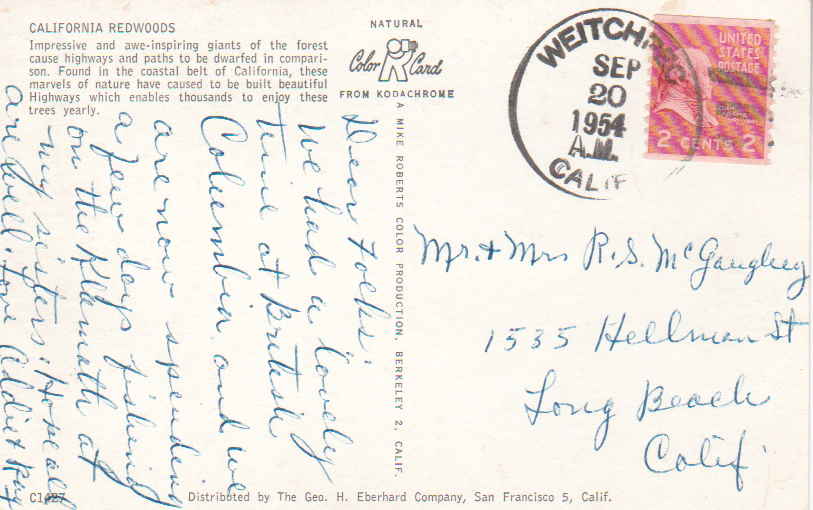 CALIFORNIA REDWOODS
Impressive and awe-inspiring giants of the forest
cause highways and paths to be dwarfed in compari-
son. Found in the coastal belt of California, these
marvels of nature have caused to be built beautiful
Highways which enables thousands to enjoy these
trees yearly.
NATURAL
Color Card
FROM KODACHROME
WEITCHPEC
SEP
20
1954
A.M.
CALIF
UNITED
STATES
POSTAGE
2 CENTS 2
Dear Folks:
We had a lovely
time at British
Columbia and we
are now spending
a few days fishing
on the Klamath at
my sisters. Hope all
are well. Love Addie & Ray
A MIKE ROBERTS COLOR PRODUCTION, BERKELEY 2, CALIF.
Mr. & Mrs R.S. McGaughey
1535 Hellman St
Long Beach
Calif
C1427
Distributed by The Geo. H. Eberhard Company, San Francisco 5, Calif.